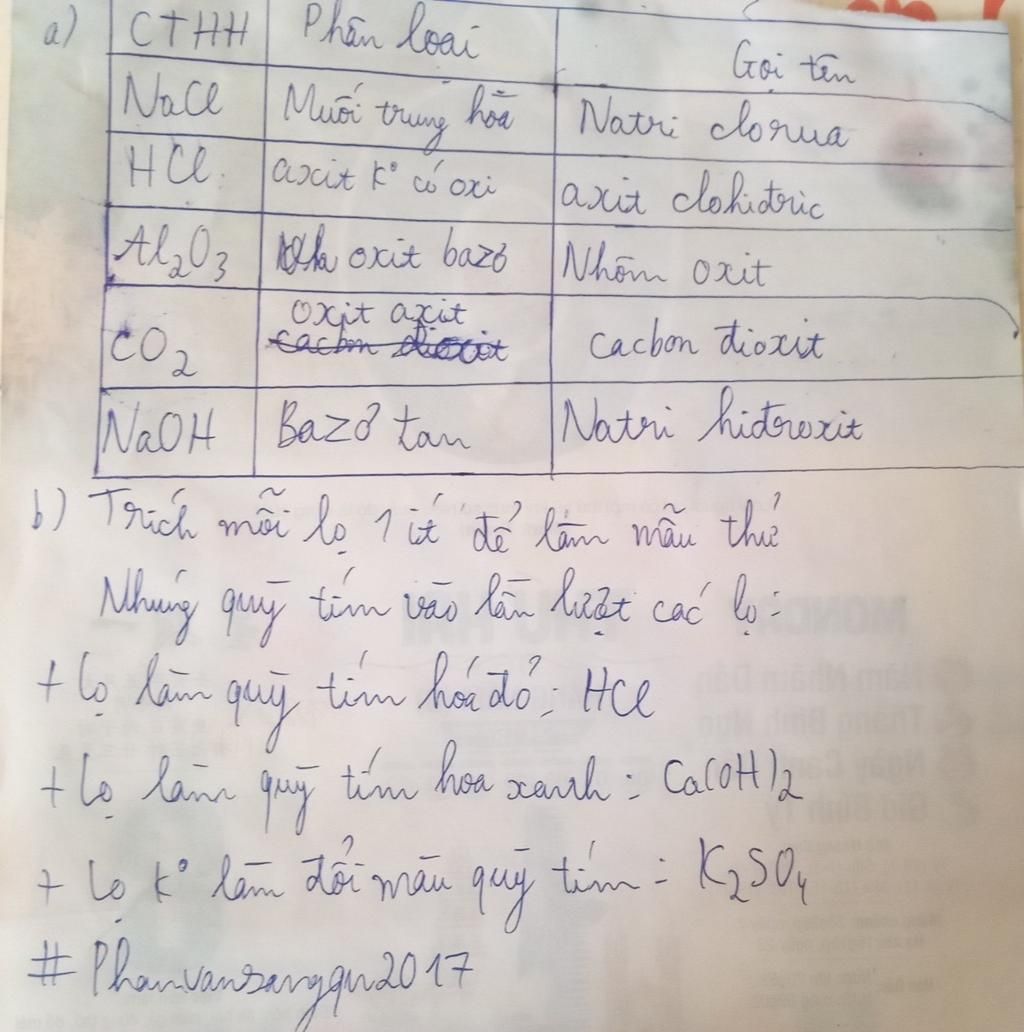 a) CTHH Phân loại Gọi tên
NaCl Muối trung hoà Natri clorua
HCl axit k° có oxi axit clohiđric
Al2O3 oxit bazơ Nhôm oxit
oxit axit
CO2 cacbon đioxit cacbon đioxit
NaOH Bazơ tan Natri hiđroxit
b) Trích mỗi lọ 1 ít để làm mẫu thử
Nhúng quỳ tím vào lần lượt các lọ:
+ Lọ làm quỳ tím hoá đỏ: HCl
+ Lọ làm quỳ tím hoa xanh: Ca(OH)2
+ Lọ k° làm đổi màu quỳ tím: K2SO4
# Phanvansangqn2017